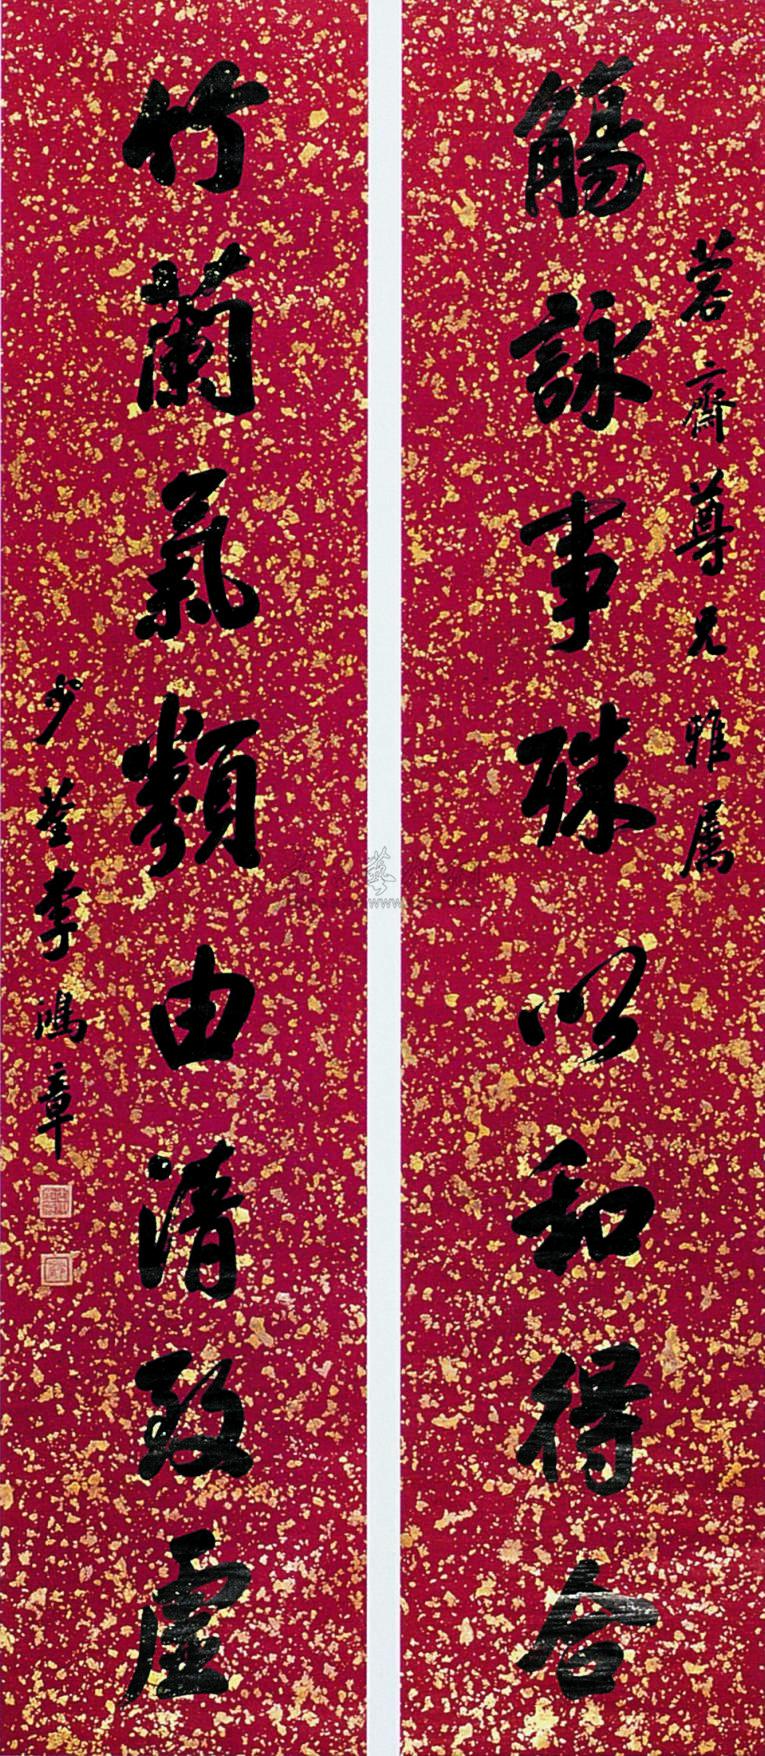 觴詠事殊以和得合
蓉齋尊兄雅属
竹蘭氣類由清致虛
少荃李鴻章